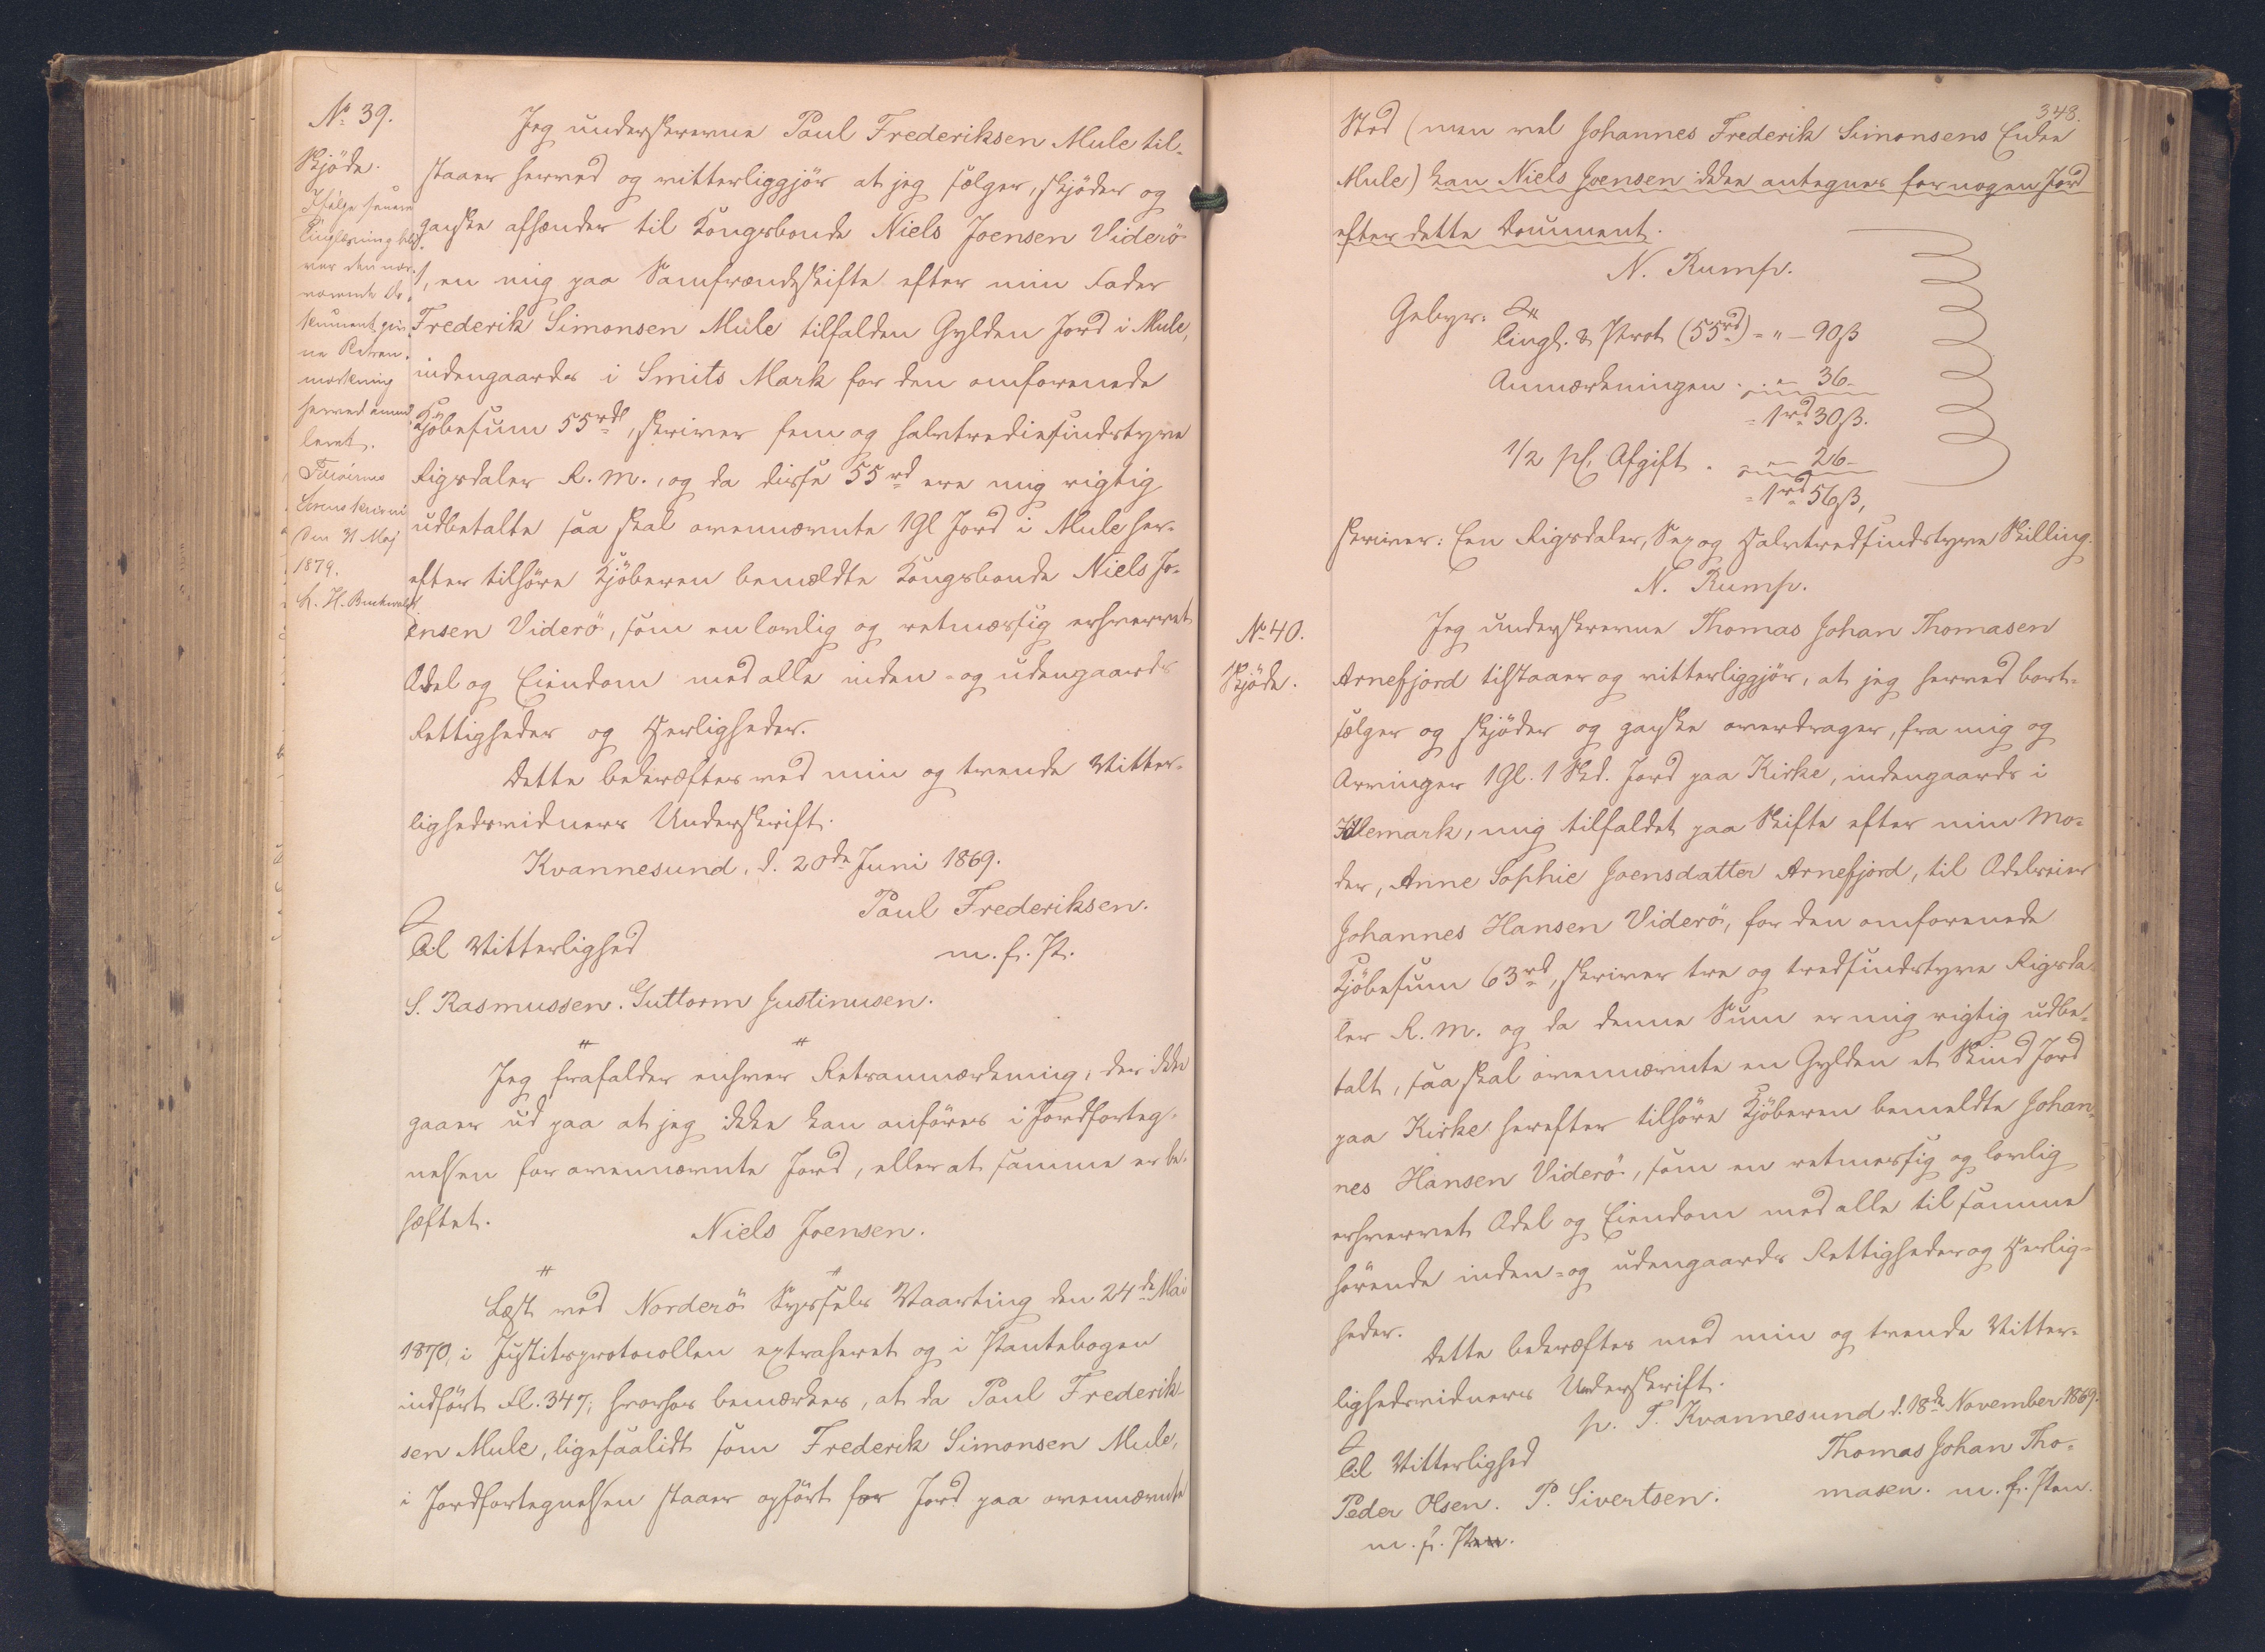 No 39.
Skjöde.
Ifölge senere
Tinglæsning bli-
ver den nær-
værende Do-
kument giv-
ne Retsan-
mærkning
herved annul-
leret.
Færöernes
Sorenskriveri
den 31 Maj
1879.
Jeg underskrevne Paul Frederiksen Mule til-
staaer herved og vitterliggjör at jeg sælger, skjöder og
ganske afhænder til Kongsbonde Niels Joensen Viderö
1, en mig paa Samfrændeskifte efter min Fader
Frederik Simonsen Mule tilfalden Gylden Jord i Mule,
indengaards i Smits Mark for den omforenede
Kjöbesum 55rd, skriver fem og halvtrediesindstyve
Rigsdaler R. M., og da disse 55rd ere mig rigtig
udbetalte saa skal ovennævnte 1 Gl Jord i Mule her-
efter tilhöre Kjöberen bemældte Kongsbonde Niels Jo-
ensen Viderö, som en lovlig og retmæssig erhvervet
Odel og Eiendom med alle inden- og udengaards
Rettigheder og Herligheder.
Dette bekræftes ved min og tvende Vitter-
lighedsvidners Underskrift.
Kvannesund, d. 20de Juni 1869.
Paul Frederiksen.
Til Vitterlighed
m. f. P.
S. Rasmussen. Guttorm Justinusen.
Jeg frafalder enhver Retsanmærkning, der ikke
gaaer ud paa at jeg ikke kan anföres i Jordforteg-
nelsen for ovennævnte Jord, eller at samme er be-
hæftet.
Niels Joensen.
Læst ved Norderö Syssels Vaarting den 24de Mai
1870, i Justitsprotocollen extraheret og i Pantebogen
indfört Fl. 347; hvorhos bemærkes, at da Paul Frederik-
sen Mule, ligesaalidt som Frederik Simonsen Mule,
i Jordfortegnelsen staaer opfört for Jord paa ovennævnte
348.
Sted (men vel Johannes Frederik Simonsens Enke
Mule) kan Niels Joensen ikke antegnes for nogen Jord
efter dette Document.
N. Rump.
Gebyr:
Tingl. & Prot (55rd) = " - 90 ß
Anmærkningen . . " 36 -
= 1rd 30 ß.
1/2 pC. Afgift . " 26 -
= 1rd 56 ß,
skriver: Een Rigsdaler, Sex og Halvtredsindstyve Skilling.
N. Rump.
No 40.
Skjöde.
Jeg underskrevne Thomas Johan Thomasen
Arnefjord tilstaaer og vitterliggjör, at jeg herved bort-
sælger og skjöder og ganske overdrager, fra mig og
Arvinger 1 Gl. 1 Skd. Jord paa Kirke, indengaards i
mark, mig tilfaldet paa Skifte efter min Mo-
der, Anne Sophie Joensdatter Arnefjord, til Odelseier
Johannes Hansen Viderö, for den omforenede
Kjöbesum 63rd, skriver tre og tredsindstyve Rigsda-
ler R. M. og da denne Sum er mig rigtig udbe-
talt, saa skal ovennævnte en Gylden et Skind Jord
paa Kirke herefter tilhöre Kjöberen bemeldte Johan-
nes Hansen Viderö, som en retmæssig og lovlig
erhvervet Odel og Eiendom med alle til samme
hörende inden- og udengaards Rettigheder og Herlig-
heder.
Dette bekræftes med min og tvende Vitter-
lighedsvidners Underskrift.
p. T. Kvannesund d. 18de November 1869.
Til Vitterlighed
Thomas Johan Tho-
masen. m. f. Pen.
Peder Olsen. P. Sivertsen.
m. f. Pen.